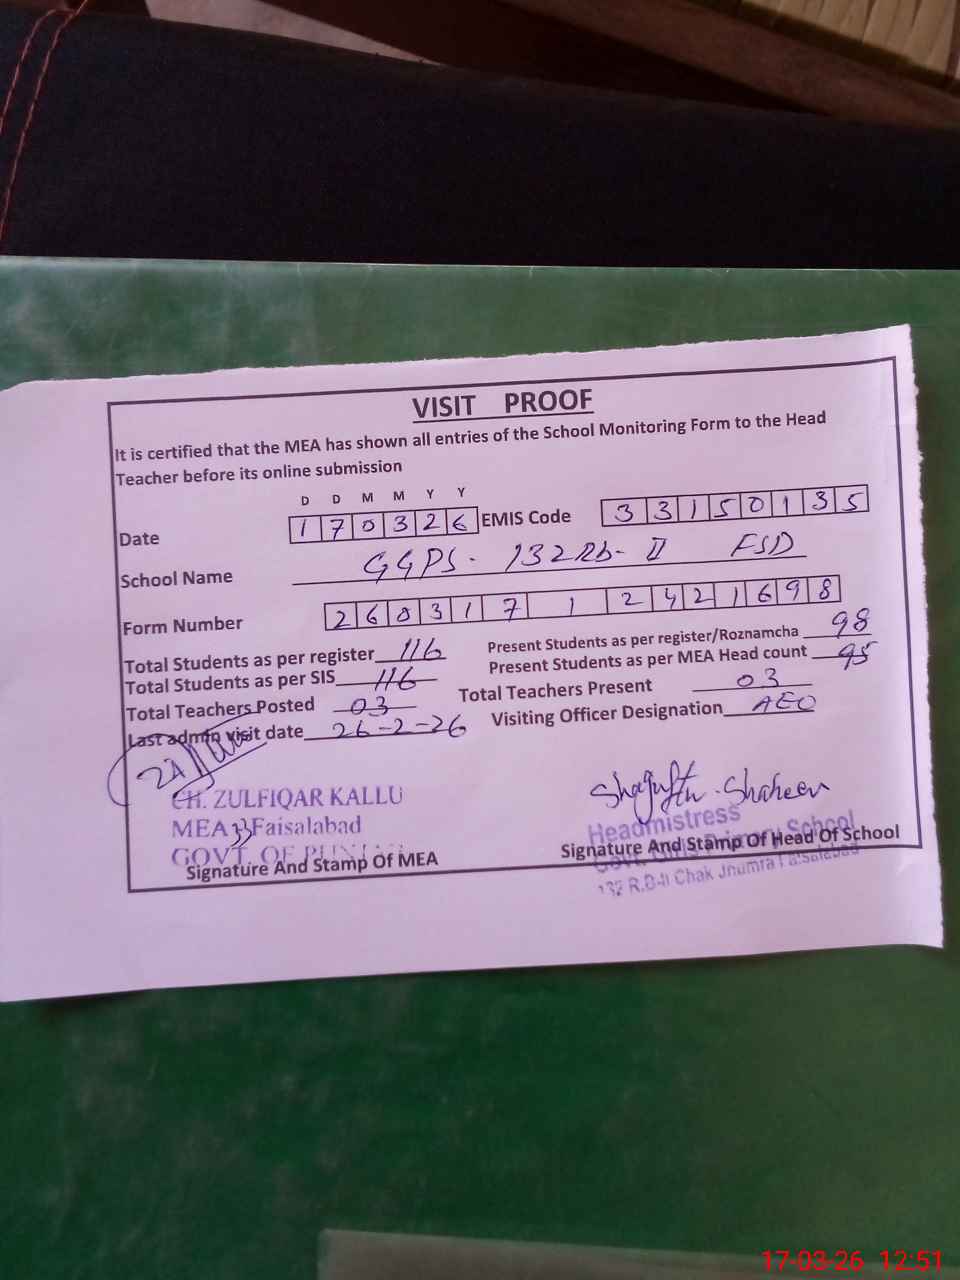 VISIT PROOF
It is certified that the MEA has shown all entries of the School Monitoring Form to the Head
Teacher before its online submission
D D M M Y Y
Date 1 7 0 3 2 6 EMIS Code 3 3 1 5 0 1 3 5
School Name GGPS- 132 Rb- II FSD
Form Number 2 6 0 3 1 7 1 2 4 2 1 6 9 8
Total Students as per register 116 Present Students as per register/Roznamcha 98
Total Students as per SIS 116 Present Students as per MEA Head count 95
Total Teachers Posted 03 Total Teachers Present 03
Last admin visit date 26-2-26 Visiting Officer Designation AEO
CH. ZULFIQAR KALLU
MEA 33 Faisalabad
GOVT. OF
Signature And Stamp Of MEA
Shagufta Shaheen
Headmistress
Govt. Girls Primary School
Signature And Stamp Of Head Of School
132 R.B-II Chak Jhumra Faisalabad
17-03-26 12:51